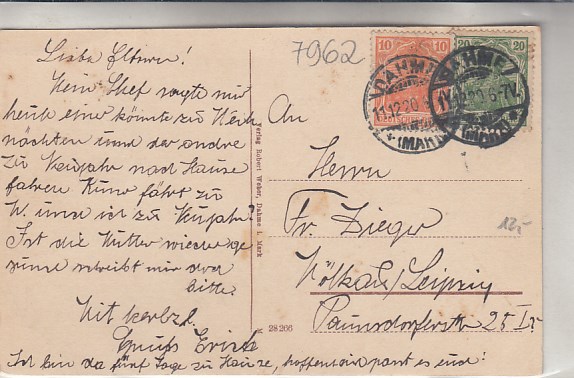 Liebe Eltern!
Mein Chef sagte mir
heut einer könnte zu Weih
nachten und der andre
zu Neujahr nach Hause
fahren Kuno fährt zu
W. und ich zu Neujahr!
Ist die Mutter wieder ge
sund schreibt mir doch
bitte.
Mit herzl.
Gruß Erich
Ich bin da fünf Tage zu Hause, hoffentlich passt es euch!
7962
10 10
20 20
DAHME
11.12.20
(MARK)
DAHME
11.12.20 6-7V
(MARK)
An
Herrn
Fr. Zieger
Mölkau/Leipzig
Paunsdorferstr 25 I r
12,-
Verlag Robert Weber, Dahme i. Mark
28266